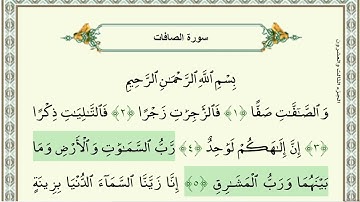 سورة الصافات
الجزء الثالث والعشرون
بِسْمِ اللَّهِ الرَّحْمَٰنِ الرَّحِيمِ
وَالصَّٰٓفَّٰتِ صَفًّا ﴿١﴾ فَالزَّٰجِرَٰتِ زَجْرًا ﴿٢﴾ فَالتَّٰلِيَٰتِ ذِكْرًا
﴿٣﴾ إِنَّ إِلَٰهَكُمْ لَوَٰحِدٌ ﴿٤﴾ رَّبُّ السَّمَٰوَٰتِ وَالْأَرْضِ وَمَا
بَيْنَهُمَا وَرَبُّ الْمَشَٰرِقِ ﴿٥﴾ إِنَّا زَيَّنَّا السَّمَآءَ الدُّنْيَا بِزِينَةٍ